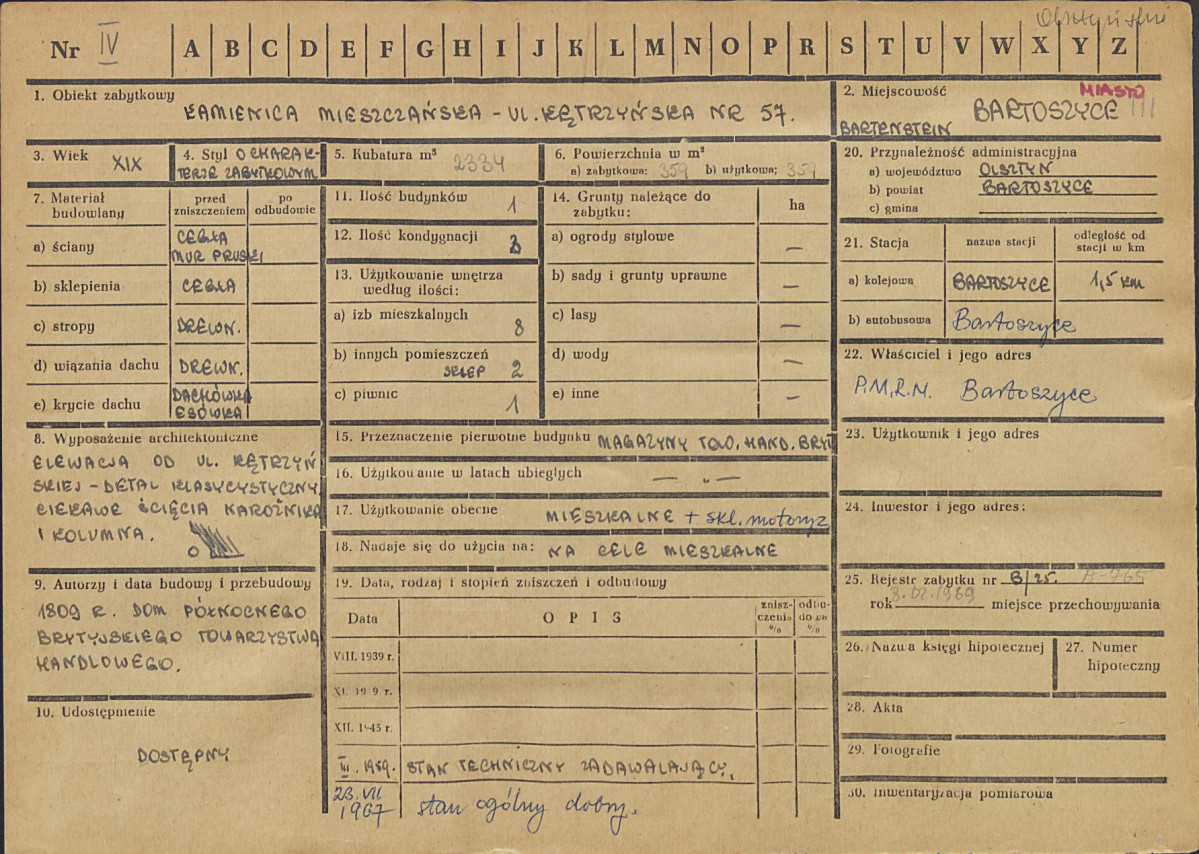 Nr IV A B C D E F G H I J K L M N O P R S T U V W X Y Z
1. Obiekt zabytkowy
KAMIENICA MIESZCZAŃSKA - UL. KĘTRZYŃSKA NR 57.
2. Miejscowość MIASTO
BARTOSZYCE III
BARTENSTEIN
3. Wiek XIX
4. Styl O CHARAK-
TERZE ZABYTKOWYM
5. Kubatura m³ 2334
6. Powierzchnia w m²
a) zabytkowa: 359 b) użytkowa: 359
7. Materiał budowlany
przed zniszczeniem
po odbudowie
a) ściany CEGŁA
MUR PRUSKI
b) sklepienia CEGŁA
c) stropy DREWN.
d) wiązania dachu DREWN.
e) krycie dachu DACHÓWKA
ESÓWKA
8. Wyposażenie architektoniczne
ELEWACJA OD UL. KĘTRZYŃ
SKIEJ - DETAL KLASYCYSTYCZNY,
CIEKAWE ŚCIĘCIA NAROŻNIKA
I KOLUMNA.
9. Autorzy i data budowy i przebudowy
1809 R. DOM PÓŁNOCNEGO
BRYTYJSKIEGO TOWARZYSTWA
HANDLOWEGO.
10. Udostępnienie
DOSTĘPNY
11. Ilość budynków 1
12. Ilość kondygnacji
13. Użytkowanie wnętrza
według ilości:
a) izb mieszkalnych 8
b) innych pomieszczeń
SKLEP 2
c) piwnic 1
14. Grunty należące do
zabytku: ha
a) ogrody stylowe —
b) sady i grunty uprawne —
c) lasy —
d) wody —
e) inne —
15. Przeznaczenie pierwotne budynku MAGAZYNY TOW. HAND. BRYT
16. Użytkowanie w latach ubiegłych — „ —
17. Użytkowanie obecne MIESZKALNE + skl. motoryz
18. Nadaje się do użycia na: NA CELE MIESZKALNE
19. Data, rodzaj i stopień zniszczeń i odbudowy
Data O P I S znisz-
czenia % odbu-
dowa %
VIII. 1939 r.
XI. 1939 r.
XII. 1945 r.
III. 1959. STAN TECHNICZNY ZADAWALAJĄCY,
23. VII
1967 stan ogólny dobry.
20. Przynależność administracyjna
a) województwo OLSZTYN
b) powiat BARTOSZYCE
c) gmina
21. Stacja nazwa stacji odległość od
stacji w km
a) kolejowa BARTOSZYCE 1,5 km
b) autobusowa Bartoszyce
22. Właściciel i jego adres
P.M.R.N. Bartoszyce
23. Użytkownik i jego adres
24. Inwestor i jego adres:
25. Rejestr zabytku nr B/25. A-765
rok 8.02.1969 miejsce przechowywania
26. Nazwa księgi hipotecznej
27. Numer
hipoteczny
28. Akta
29. Fotografie
30. Inwentaryzacja pomiarowa